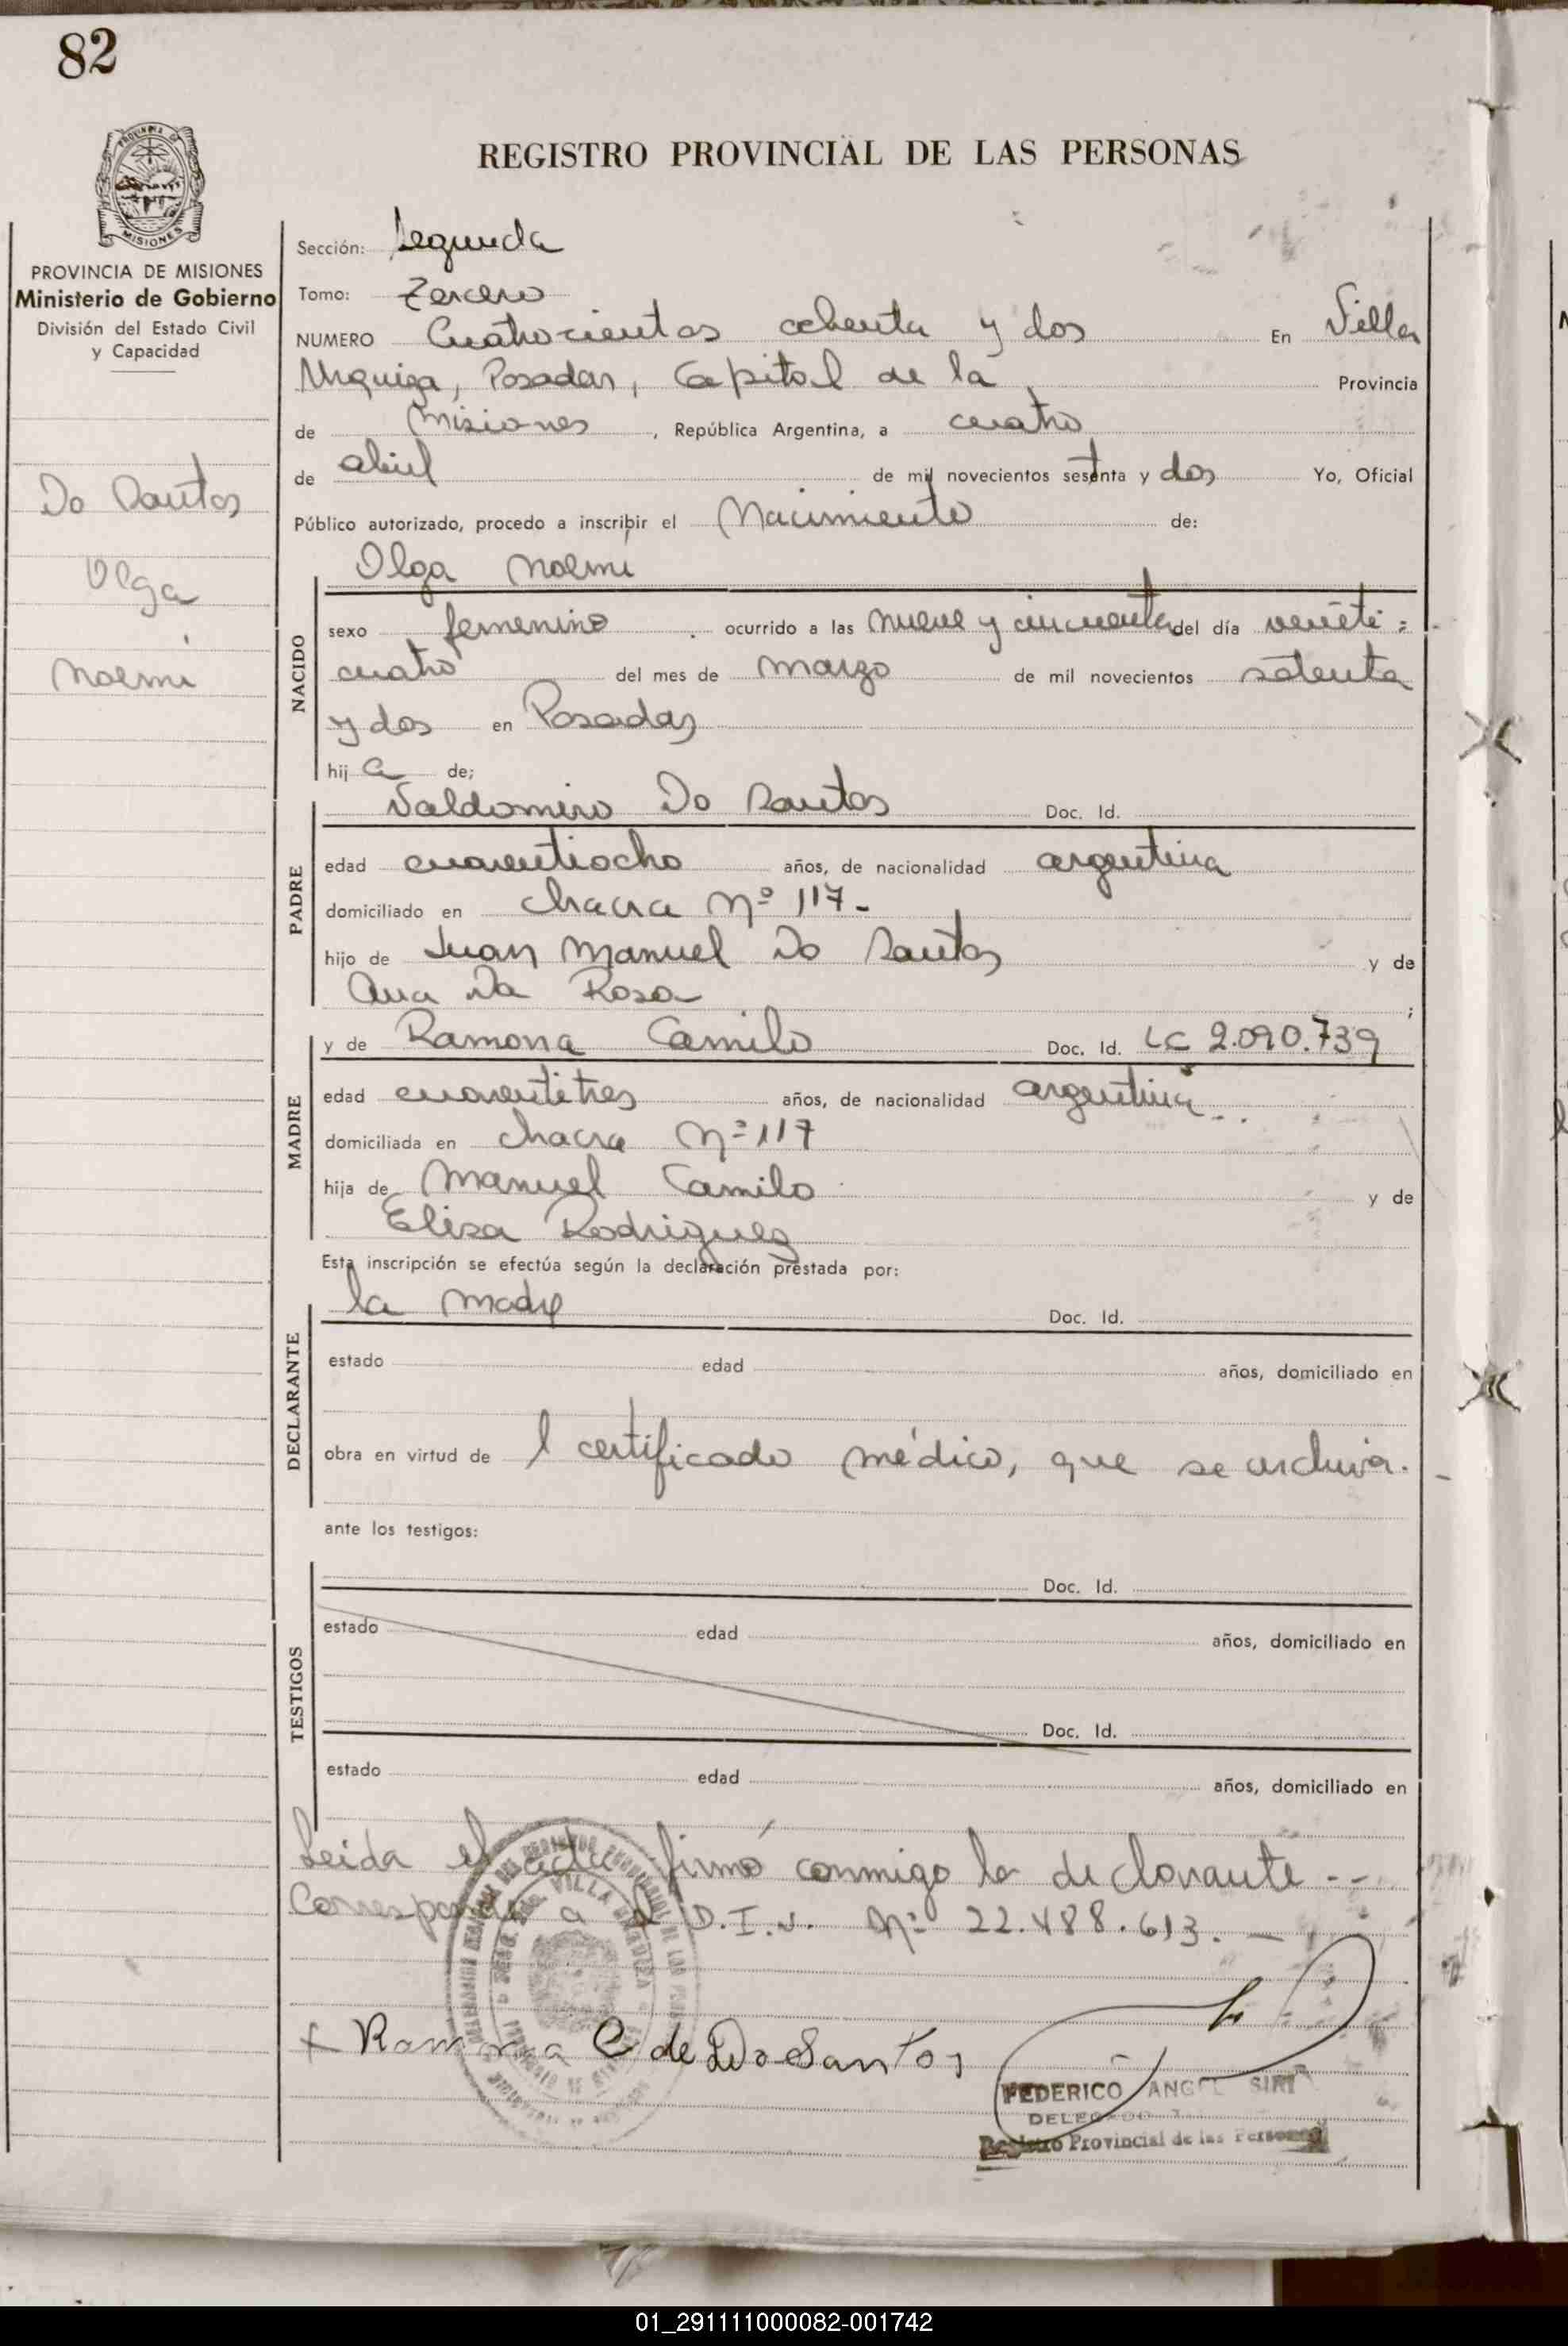 82
PROVINCIA DE
MISIONES
PROVINCIA DE MISIONES
Ministerio de Gobierno
División del Estado Civil
y Capacidad
Do Santos
Olga
Noemí
REGISTRO PROVINCIAL DE LAS PERSONAS
Sección: Segunda
Tomo: Tercero
NUMERO Cuatrocientos ochenta y dos En Villa
Urquiza, Posadas, Capital de la Provincia
de Misiones, República Argentina, a cuatro
de abril de mil novecientos setenta y dos Yo, Oficial
Público autorizado, procedo a inscribir el Nacimiento de:
Olga Noemí
NACIDO
sexo femenino . ocurrido a las nueve y cincuenta del día veinti=
cuatro del mes de marzo de mil novecientos setenta
y dos en Posadas
hij a de;
PADRE
Valdomiro Do Santos Doc. Id.
edad cuarentiocho años, de nacionalidad argentina
domiciliado en chacra Nº 117-
hijo de Juan Manuel Do Santos y de
Ana Da Rosa ;
MADRE
y de Ramona Camilo Doc. Id. LC 2.090.739
edad cuarentitres años, de nacionalidad argentina..
domiciliada en chacra Nº 117
hija de Manuel Camilo y de
Elisa Rodriguez
Esta inscripción se efectúa según la declaración prestada por:
DECLARANTE
la madre Doc. Id.
estado edad años, domiciliado en
obra en virtud de l certificado médico, que se archiva.-
ante los testigos:
TESTIGOS
Doc. Id.
estado edad años, domiciliado en
Doc. Id.
estado edad años, domiciliado en
Leida el acta firmó conmigo la declarante --
Corresponde a D.I.U. Nº 22.488.613. -
VILLA URQUIZA
Ramona C de Do Santos
FEDERICO ANGEL SIRI
DELEGADO
Registro Provincial de las Personas
01_291111000082-001742